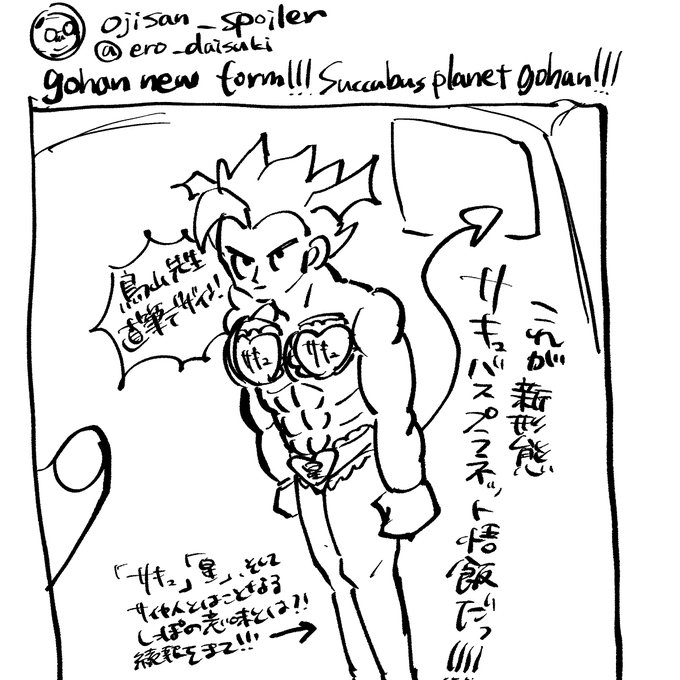 ojisan_spoiler
@ero_daisuki
gohan new form!!! Succubus planet gohan!!!
鳥山先生
直筆デザイン!
これが新形態
サキュバスプラネット悟飯だっ!!!!
サキュ
サキュ
星
「サキュ」「星」、そして
サイヤ人とはことなる
しっぽの意味とは?!
続報をまて!!!